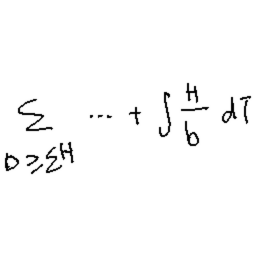 \sum_{D \geq \Sigma H} \cdots + \int \frac{H}{b} dT